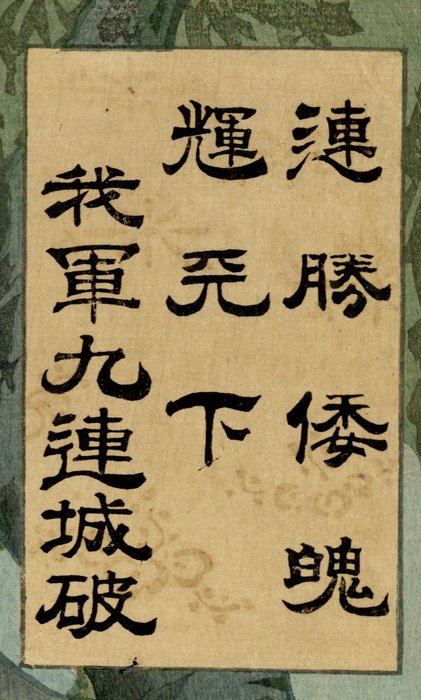 連勝倭魄
輝天下
我軍九連城破